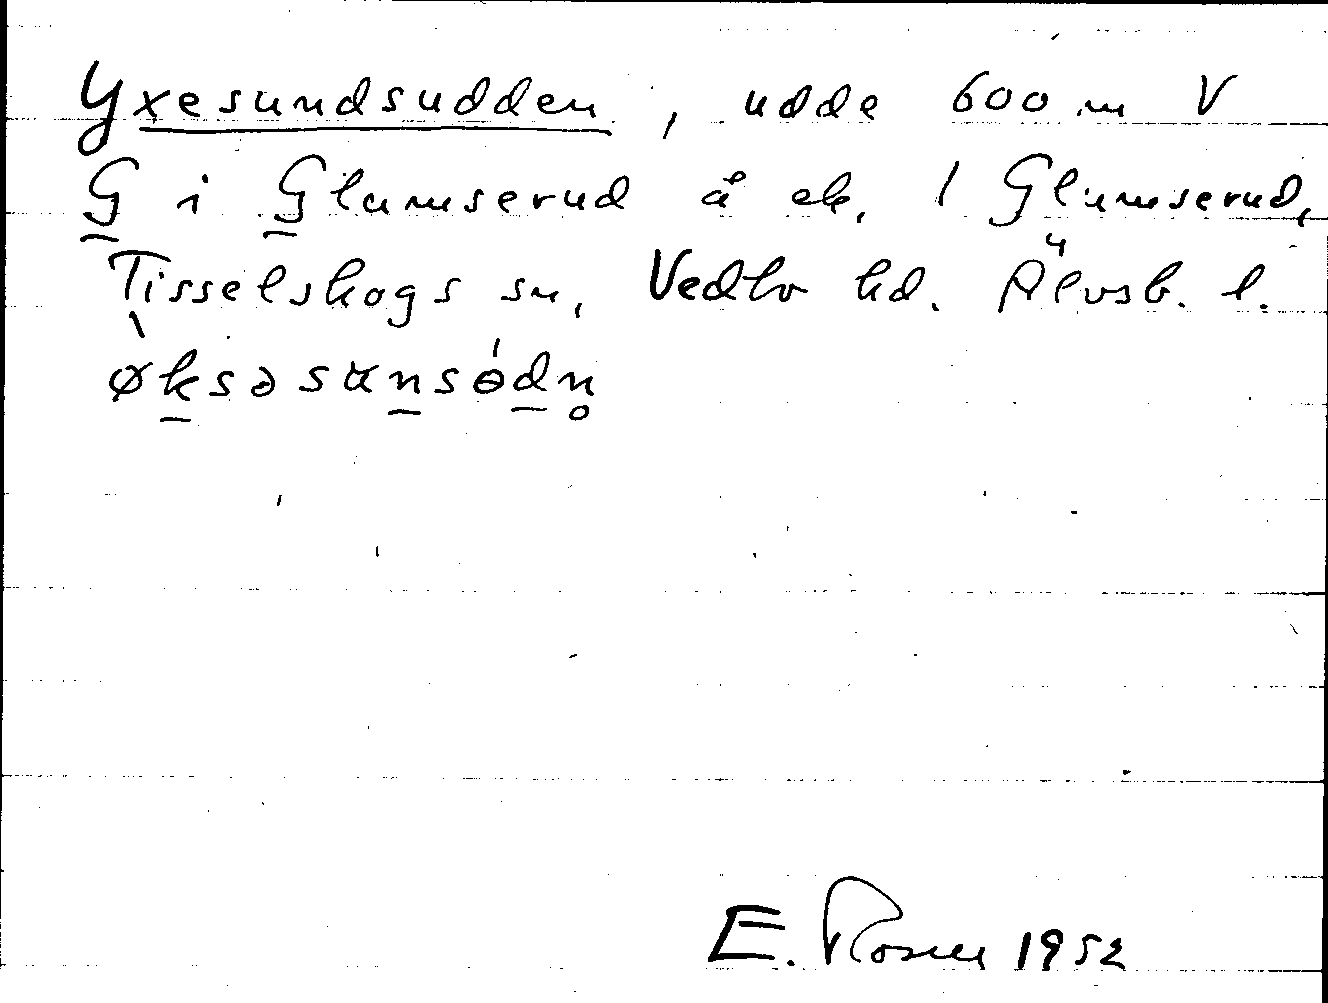 Yxesundsudden, udde 600 m V
G i Glumserud å ek. 1 Glumserud,
Tisselskogs sn, Vedbo hd. Älvsb. l.
ø̀ksəsɷnsɵ́dn̥
E. Rosen 1952